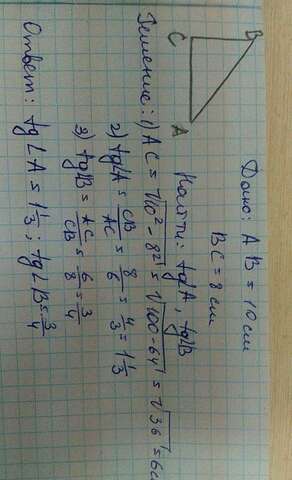 Дано: AB = 10 см
BC = 8 см
Найти: tgA, tgB
C
B
A
Решение: 1) AC = √10² - 8² = √100 - 64 = √36 = 6см
2) tg∠A = CB/AC = 8/6 = 4/3 = 1 1/3
3) tgB = AC/CB = 6/8 = 3/4
Ответ: tg∠A = 1 1/3; tg∠B = 3/4